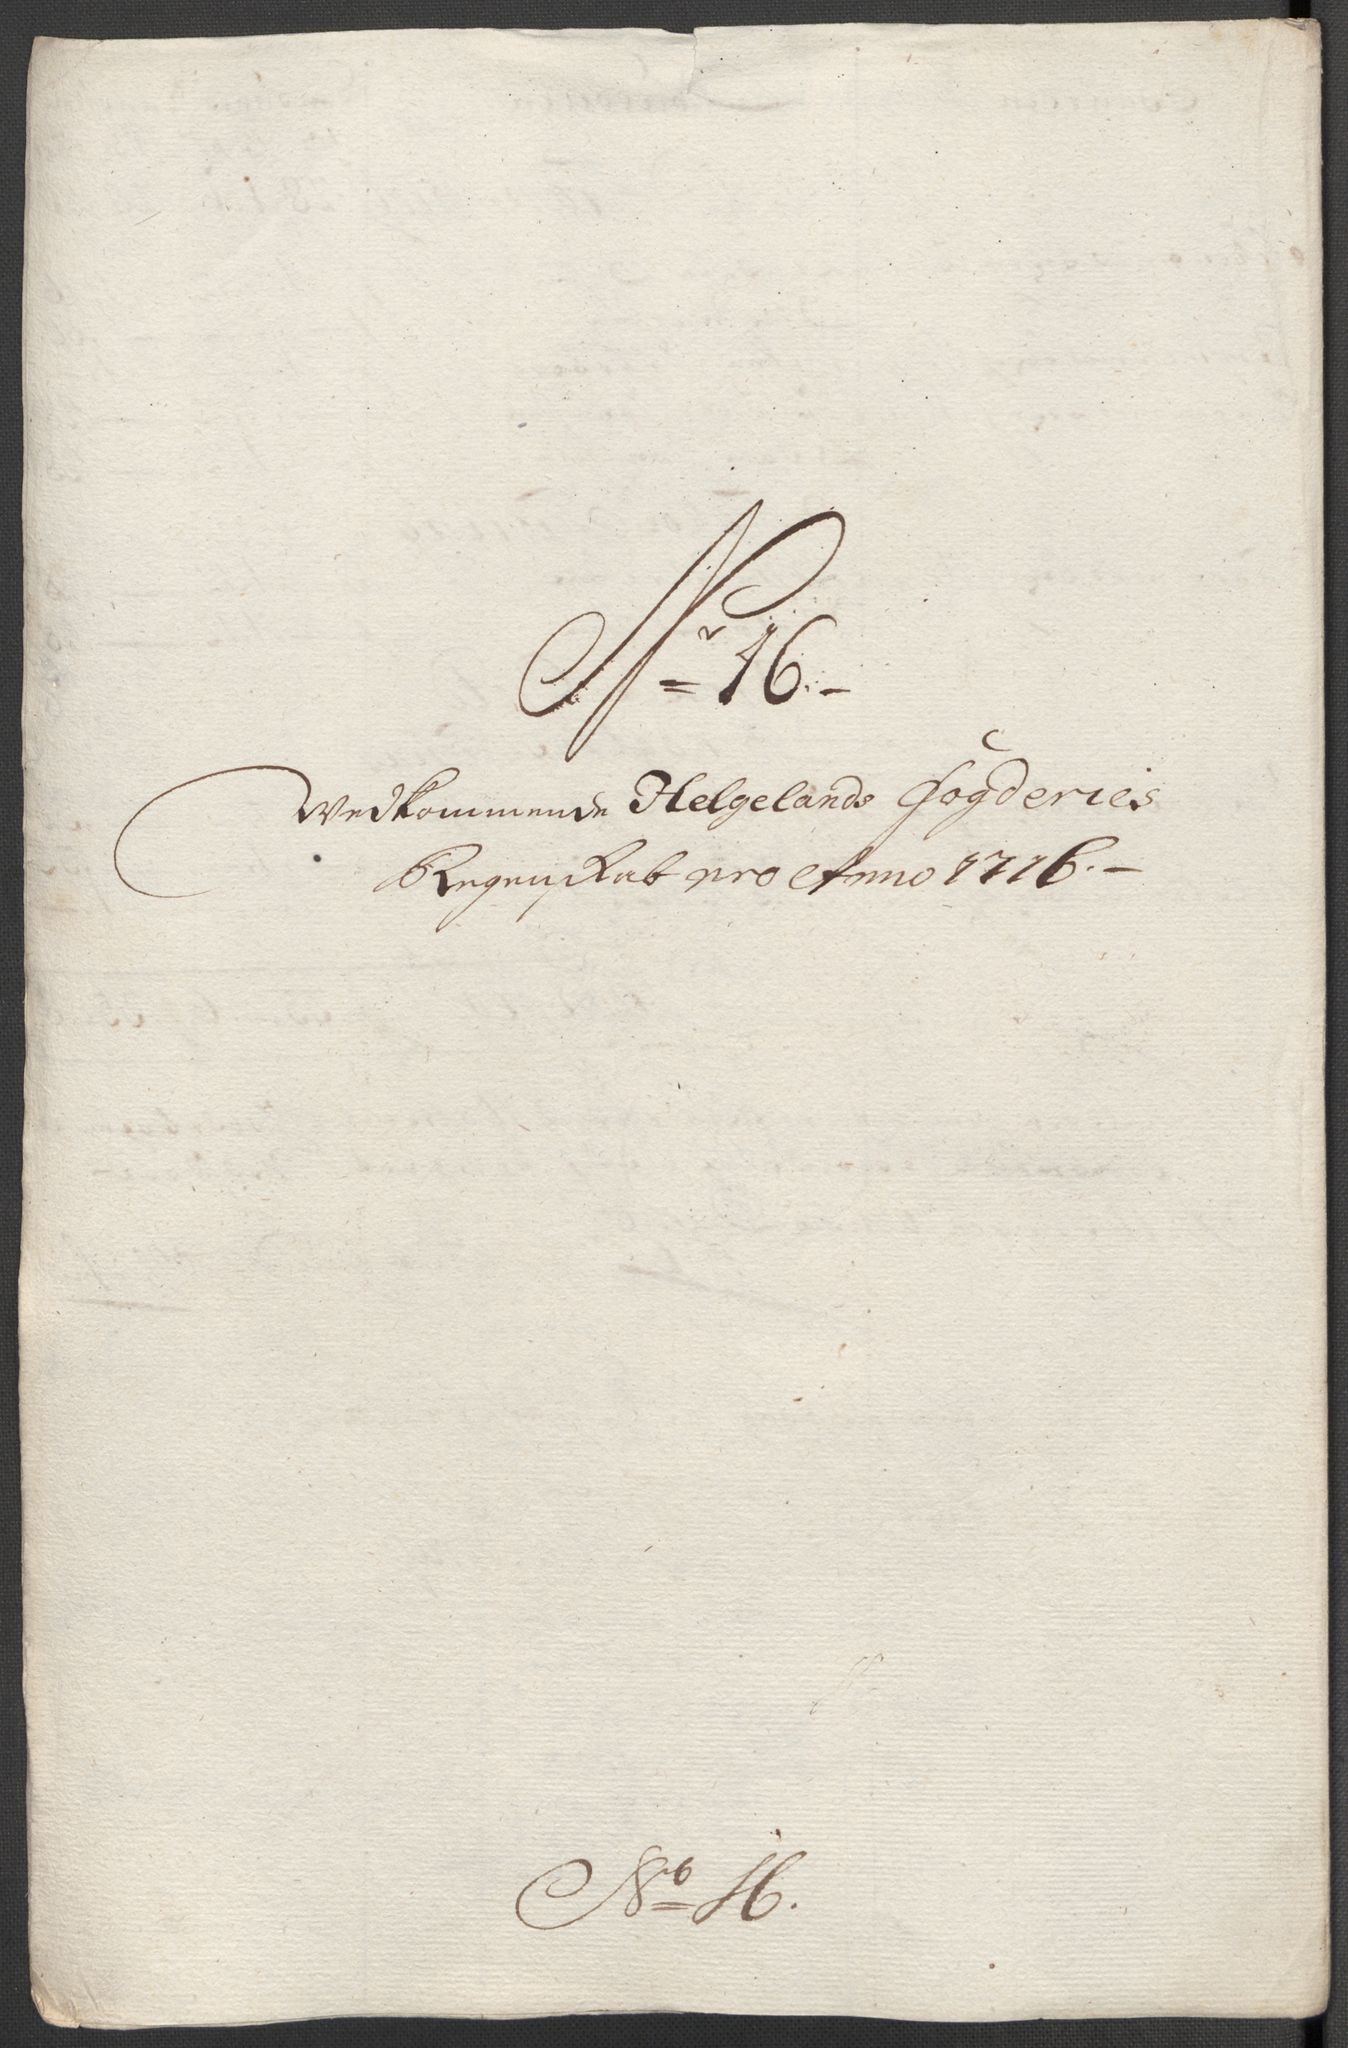 Nr 16.
Vedkommende Helgelands Fogderies
Regenskab pro Anno 1716.
No 16.